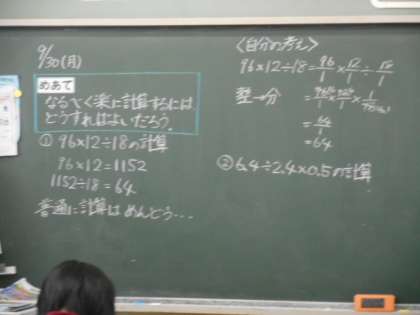 9/30(月)
めあて
なるべく楽に計算するには
どうすればよいだろう。
① 96×12÷18の計算
96×12=1152
1152÷18=64
普通に計算は めんどう…
〈自分の考え〉
96×12÷18=96/1×12/1÷18/1
整→分
=64/1
=64
② 6.4÷2.4×0.5の計算